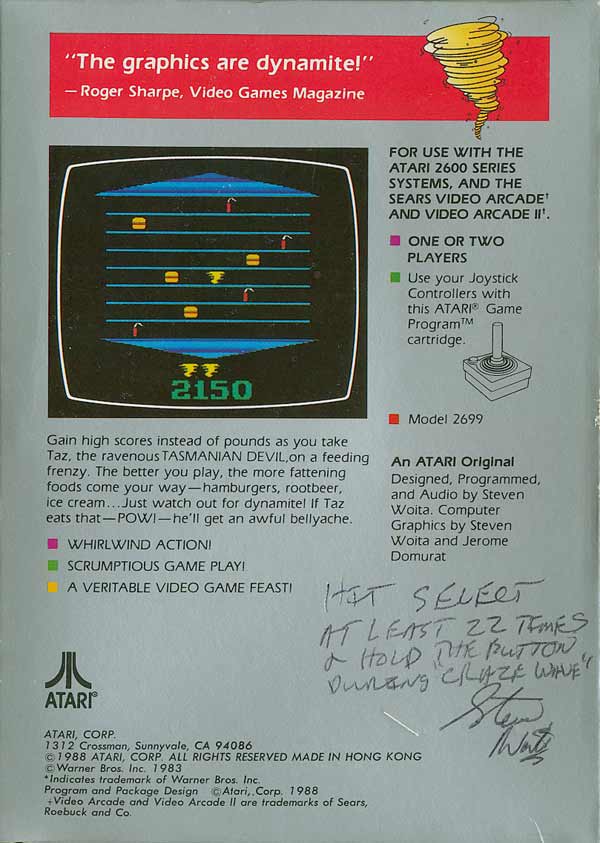 “The graphics are dynamite!”
— Roger Sharpe, Video Games Magazine
2150
FOR USE WITH THE
ATARI 2600 SERIES
SYSTEMS, AND THE
SEARS VIDEO ARCADE†
AND VIDEO ARCADE II†.
ONE OR TWO
PLAYERS
Use your Joystick
Controllers with
this ATARI® Game
Program™
cartridge.
Model 2699
An ATARI Original
Designed, Programmed,
and Audio by Steven
Woita. Computer
Graphics by Steven
Woita and Jerome
Domurat
Gain high scores instead of pounds as you take
Taz, the ravenous TASMANIAN DEVIL,on a feeding
frenzy. The better you play, the more fattening
foods come your way—hamburgers, rootbeer,
ice cream...Just watch out for dynamite! If Taz
eats that—POW!—he'll get an awful bellyache.
WHIRLWIND ACTION!
SCRUMPTIOUS GAME PLAY!
A VERITABLE VIDEO GAME FEAST!
HIT SELECT
AT LEAST 22 TIMES
& HOLD THE BUTTON
DURING "CRAZE WAVE"
Steve
Woita
ATARI®
ATARI, CORP.
1312 Crossman, Sunnyvale, CA 94086
©1988 ATARI, CORP. ALL RIGHTS RESERVED MADE IN HONG KONG
©Warner Bros. Inc. 1983
*Indicates trademark of Warner Bros. Inc.
Program and Package Design ©Atari,.Corp. 1988
+Video Arcade and Video Arcade II are trademarks of Sears,
Roebuck and Co.